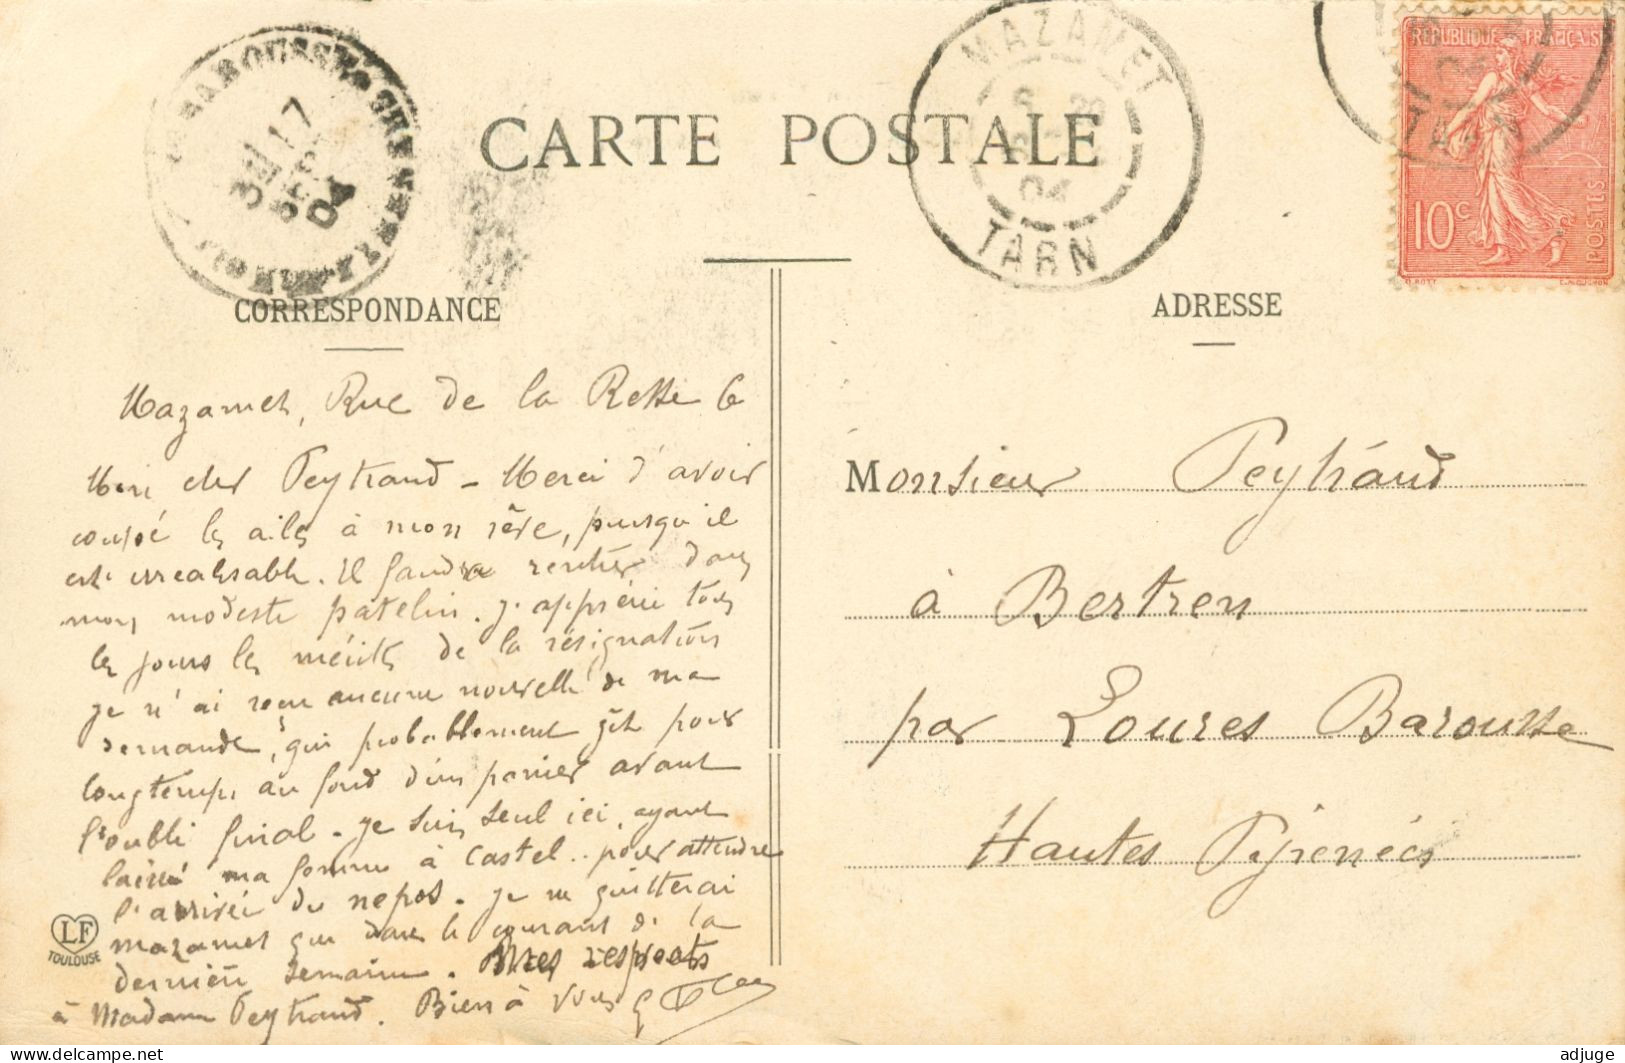 CARTE POSTALE
MAZAMET
04
TARN
17
SEPT
04
REPUBLIQUE FRANÇAISE
10c
POSTES
O. ROTY
CORRESPONDANCE
ADRESSE
Mazamet, Rue de la
Mon cher Peytraud - Merci d'avoir
coupé les ailes à mon rêve, puisqu'il
est irrealisable. Il faudra rentrer dans
mon modeste patelin. J'apprécie tous
les jours les mérites de la résignation
je n'ai reçu aucune nouvelle de ma
demande, qui probablement gît pour
longtemps au fond d'un panier avant
l'oubli final - je suis seul ici, ayant
laissé ma femme à Castel.. pour attendre
l'arrivée du nepos. je ne quitterai
mazamet que dans le courant de la
dernière semaine. Mes respects
à Madame Peytraud. Bien à vous
LF
TOULOUSE
Monsieur Peytraud
à Bertren
par Loures Barousse
Hautes Pyrénées
delcampe.net
adjuge